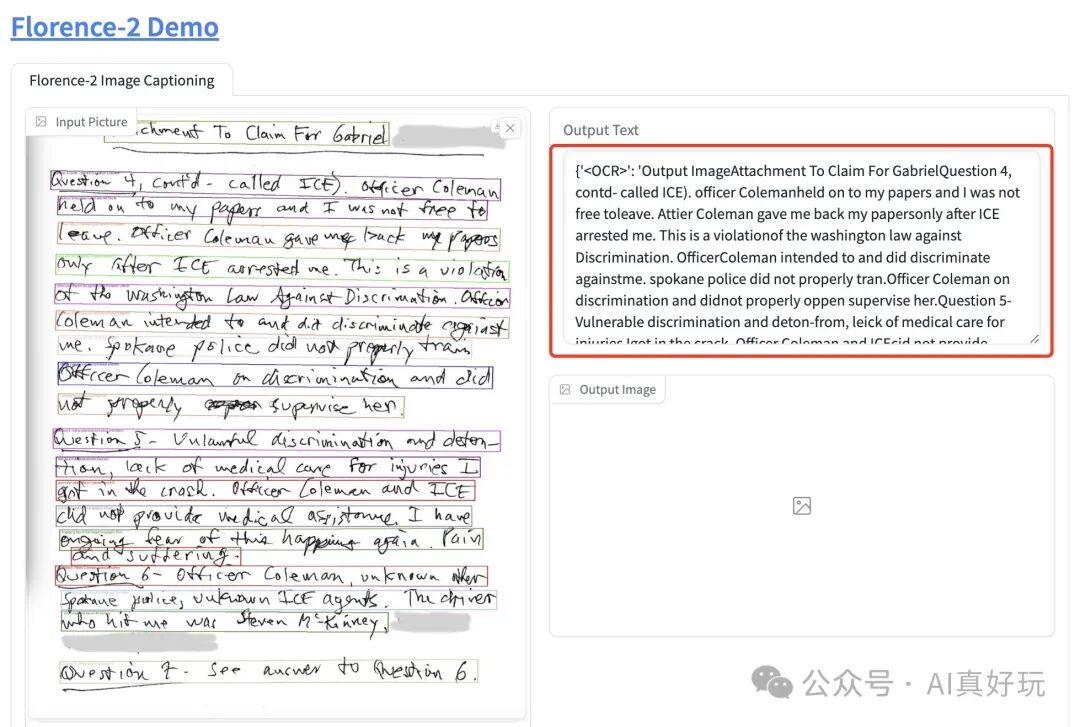 Florence-2 Demo
Florence-2 Image Captioning
Input Picture
chment To Claim For Gabriel
Question 4, cont'd - called ICE). Officer Coleman
held on to my papers and I was not free to
leave. Officer Coleman gave me back my papers
only after ICE arrested me. This is a violation
of the Washington Law Against Discrimination. Officer
Coleman intended to and did discriminate against
me. Spokane police did not properly train
Officer Coleman on discrimination and did
not properly supervise her.
Question 5- Unlawful discrimination and deten-
tion, lack of medical care for injuries I
got in the crash. Officer Coleman and ICE
did not provide medical assistance. I have
ongoing fear of this happening again. Pain
and suffering.
Question 6- Officer Coleman, unknown other
Spokane police, unknown ICE agents. The driver
who hit me was Steven McKinney,
Question 7- See answer to Question 6.
Output Text
{'<OCR>': 'Output ImageAttachment To Claim For GabrielQuestion 4,
contd- called ICE). officer Colemanheld on to my papers and I was not
free toleave. Attier Coleman gave me back my papersonly after ICE
arrested me. This is a violationof the washington law against
Discrimination. OfficerColeman intended to and did discriminate
againstme. spokane police did not properly tran.Officer Coleman on
discrimination and didnot properly oppen supervise her.Question 5-
Vulnerable discrimination and deton-from, leick of medical care for
injuries Igot in the crack. Officer Coleman and ICEcid not provide
Output Image
公众号 · AI真好玩